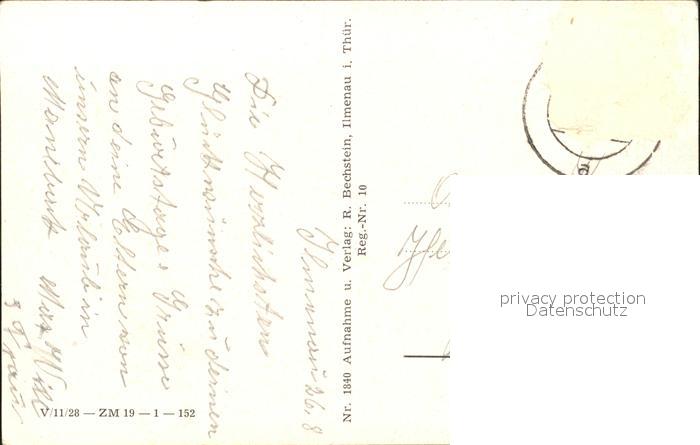 Ilmenau 26. 8
Die Herzlichsten
Glückwünsche zu deinen
Geburtstage u Grüsse
an deine Eltern von
unsern Urlaub in
Manebach
u Frau
Nr. 1840 Aufnahme u. Verlag: R. Bechstein, Ilmenau i. Thür.
Reg.-Nr. 10
V/11/28 — ZM 19 — 1 — 152
privacy protection
Datenschutz